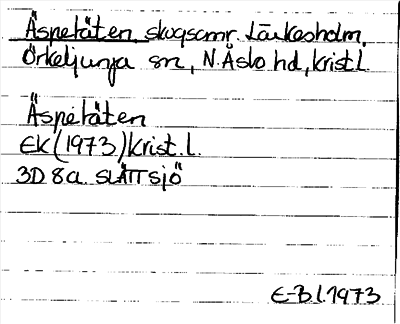 Äspetäten skogsomr. Lärkesholm,
Örkeljunga sn, N. Åsbo hd, Krist.l.
Äspetäten
EK (1973) Krist.l.
3D 8a SLÄTTSJÖ
E-B.l.1973